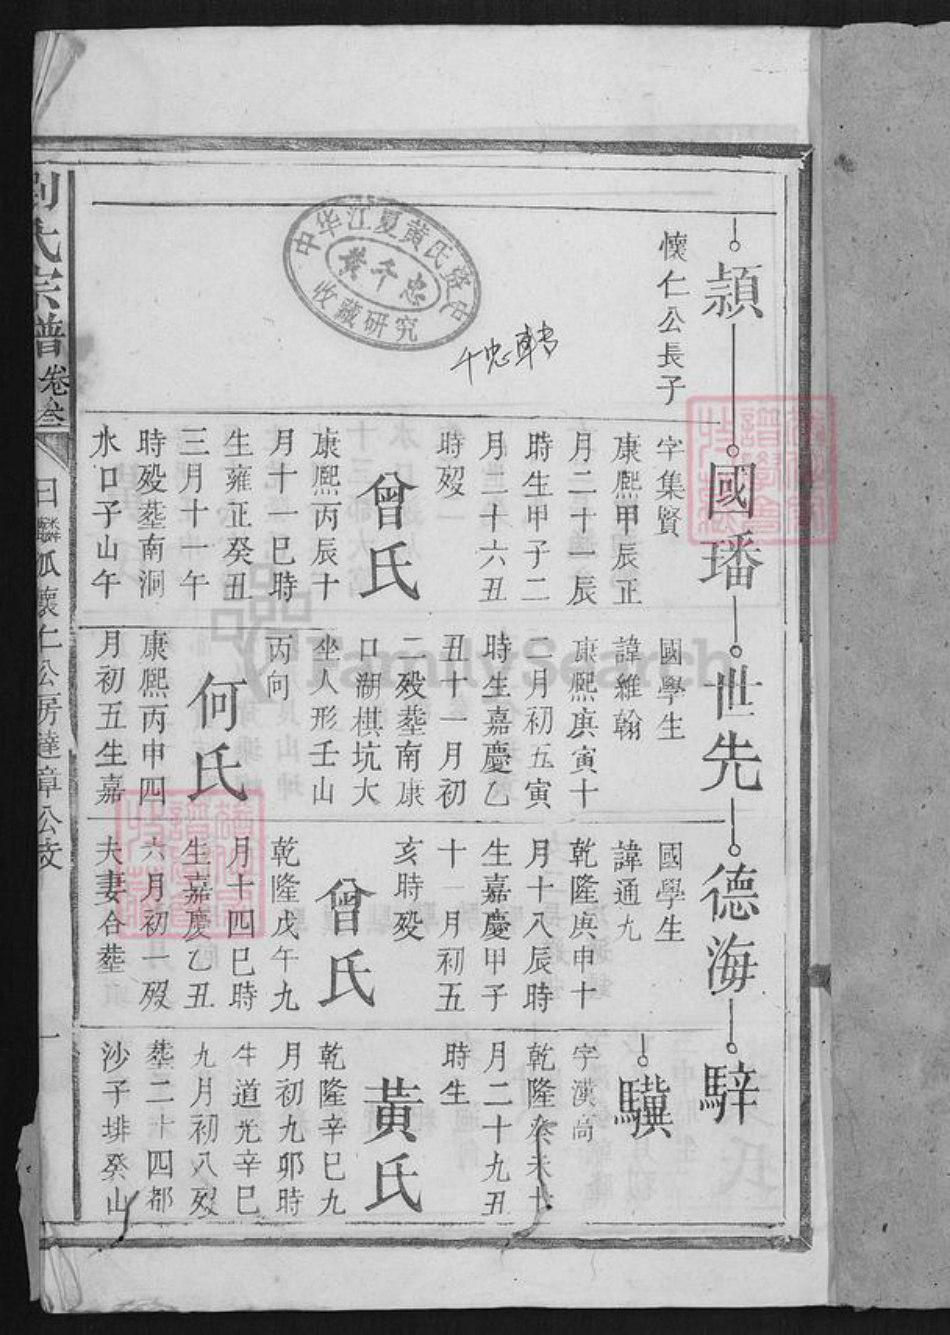 頴
懷仁公長子
國璠
字集賢
康熙甲辰正
月二十一辰
時生甲子二
月二十六丑
時歿
曾氏
康熙丙辰十
月十一巳時
生雍正癸丑
三月十一午
時歿塟南洞
水口子山午
世先
國學生
諱維翰
康熙庚寅十
二月初五寅
時生嘉慶乙
丑十一月初
二歿塟南康
口湖棋坑大
坐人形壬山
丙向
何氏
康熙丙申四
月初五生嘉
德海
國學生
諱通九
乾隆庚申十
月十八辰時
生嘉慶甲子
十一月初五
亥時歿
曾氏
乾隆戊午九
月十四巳時
生嘉慶乙丑
六月初一歿
夫妻合塟
騂
驥
字漢尚
乾隆癸未十
月二十九丑
時生
黃氏
乾隆辛巳九
月初九卯時
生道光辛巳
九月初八歿
塟二十四都
沙子排癸山
劉氏宗譜
卷叁
日麟派懷仁公房達章公支
一
中华江夏黄氏
黄千忠
收藏研究
千忠
FamilySearch